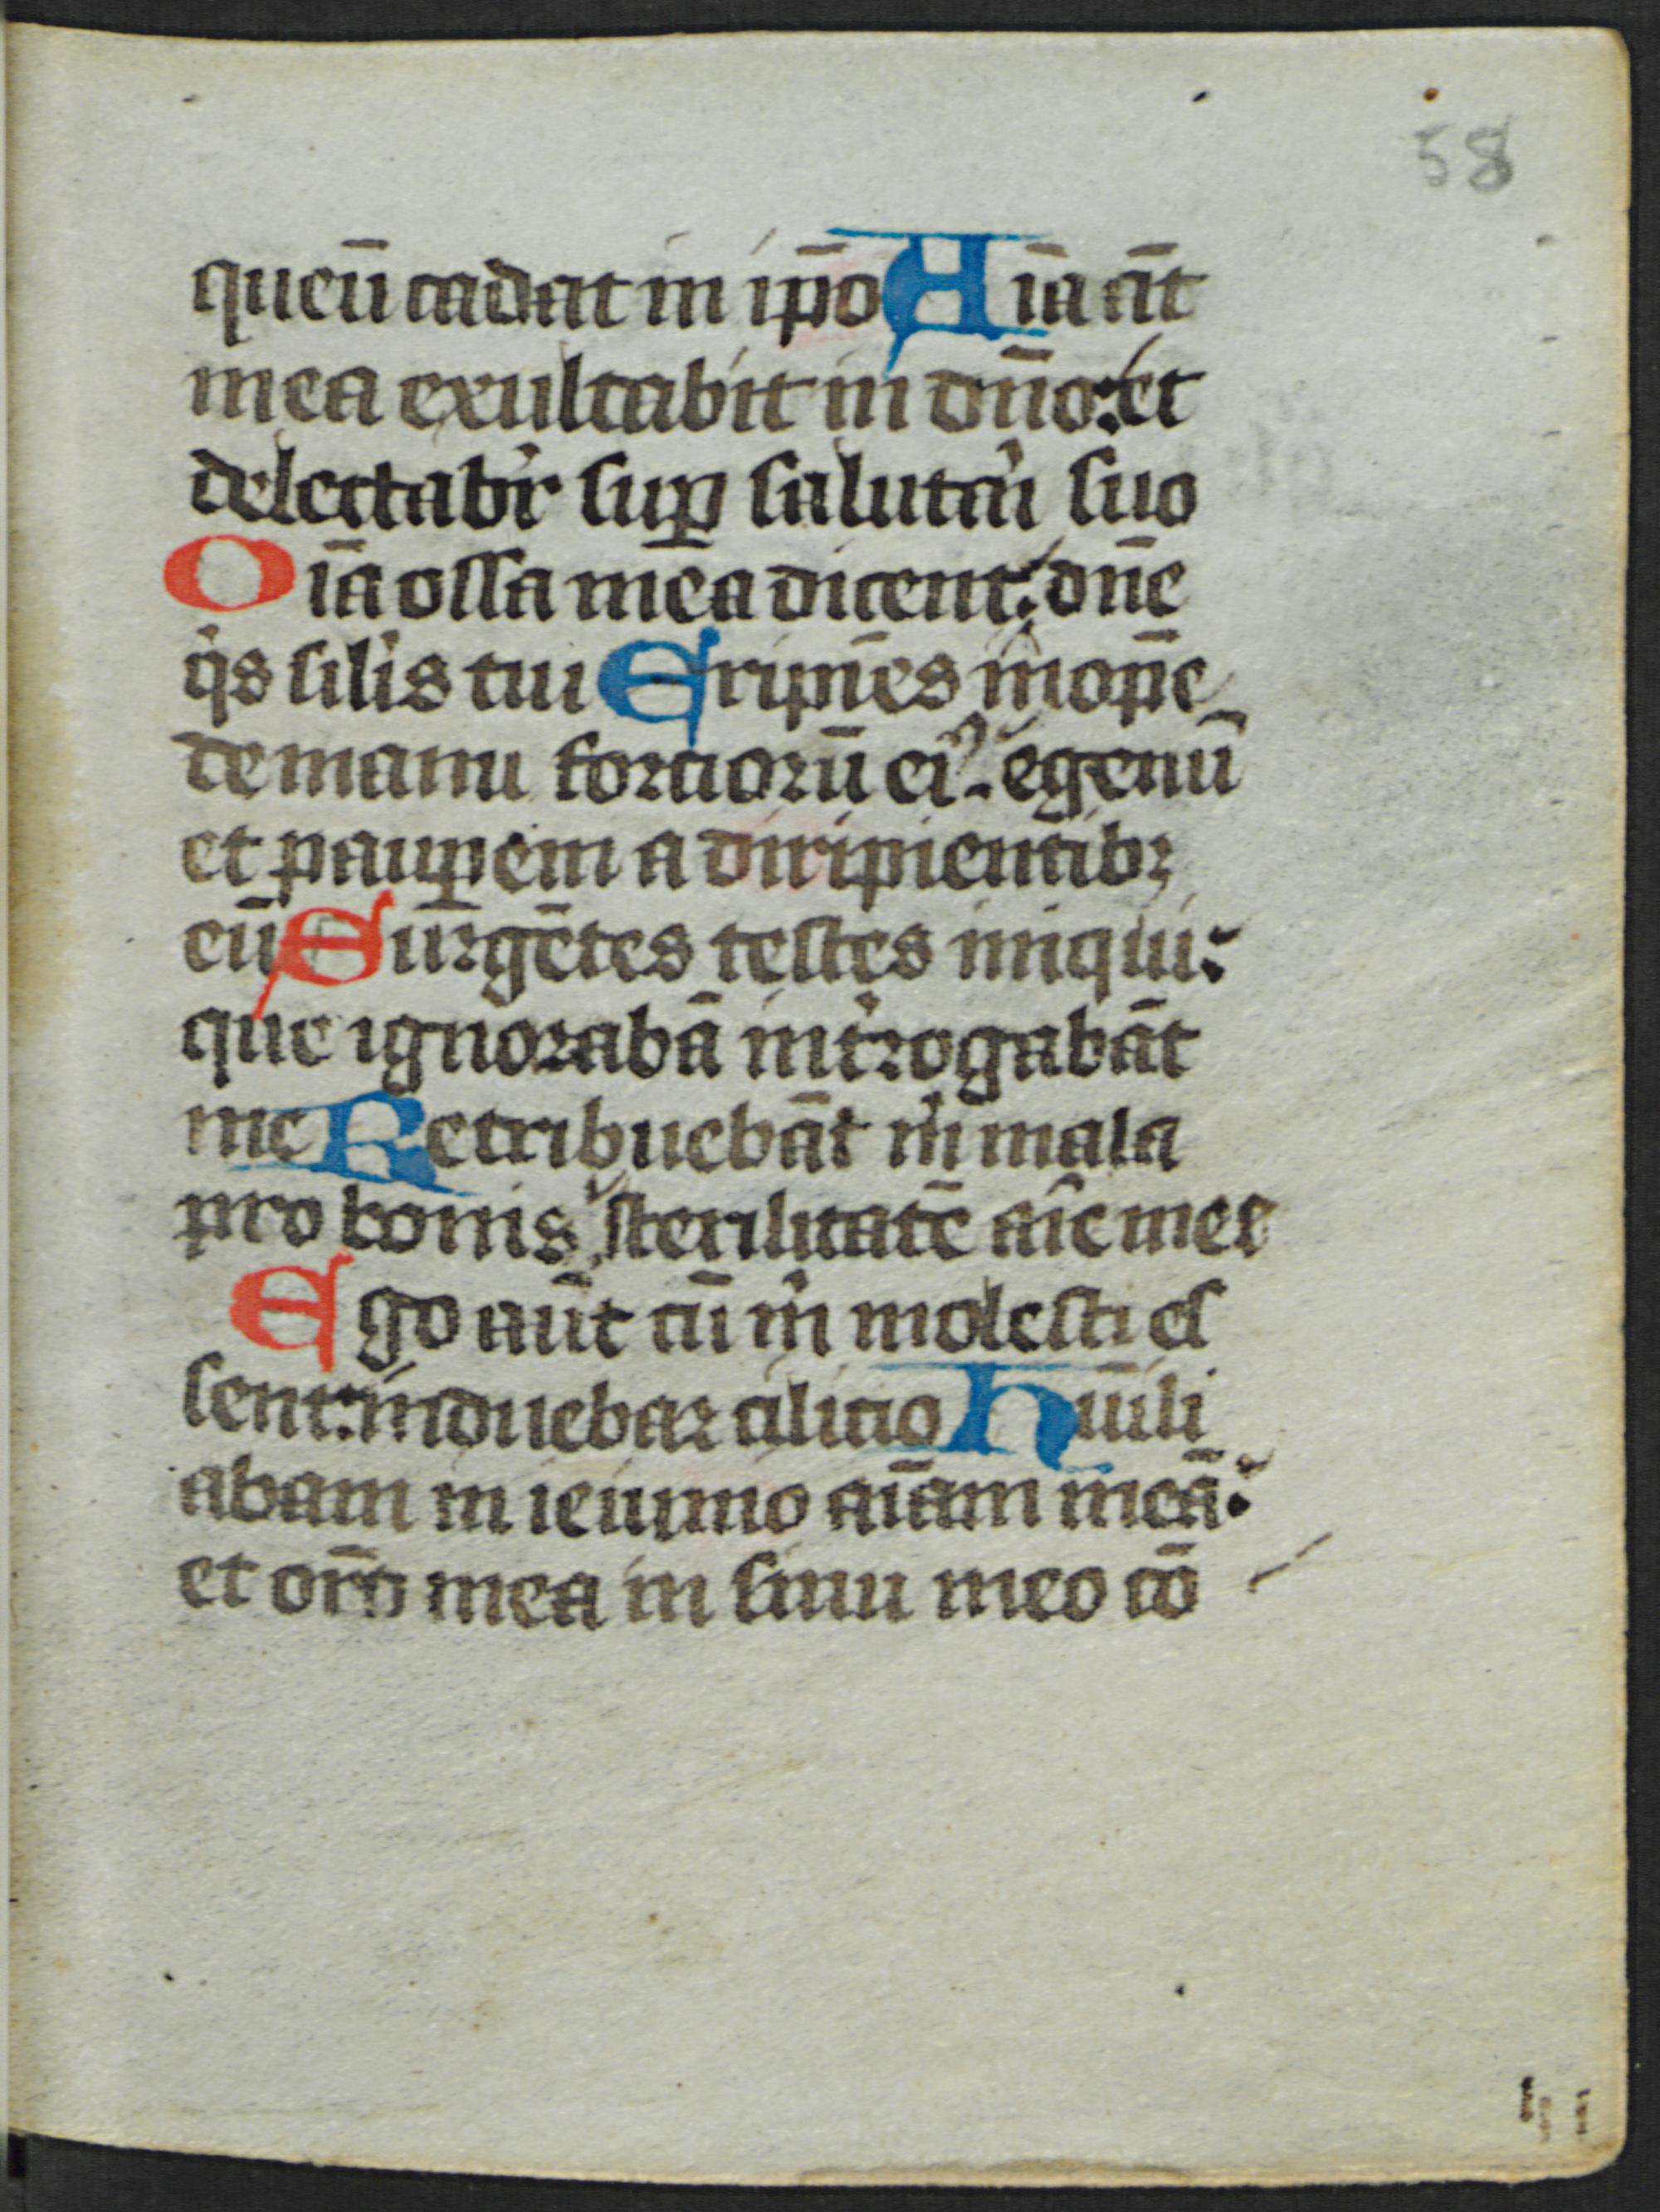 58
queū cadat in ip̄o Aīa āt
mea exultabit in dn̄o: et
delectabir sup̱ salutari suo
Oīa ossa mea dicent: dn̄e
qis silis tui Eripiēs inope
de manu fortiorū eiꝰ. egenū
et paup̱em a diripientibꝫ
eū Surgētes testes iniqui:
que ignorabā int̄rogabāt
me Retribuebāt m mala
pro bonis sterilitatē aīe mee
Ego aūt cū m molesti es
sent: induebar cilicio Hūili
abam in ieiunio aīam meā:
et orō mea in sinu meo cō